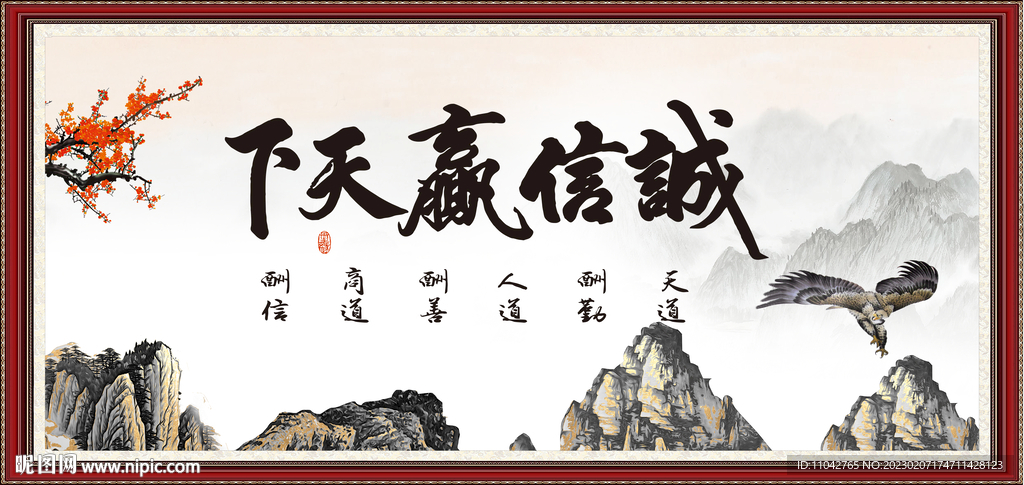 誠信贏天下
天道 酬勤 人道 酬善 商道 酬信
昵图网 www.nipic.com
ID:11042765 NO:20230207174711428123